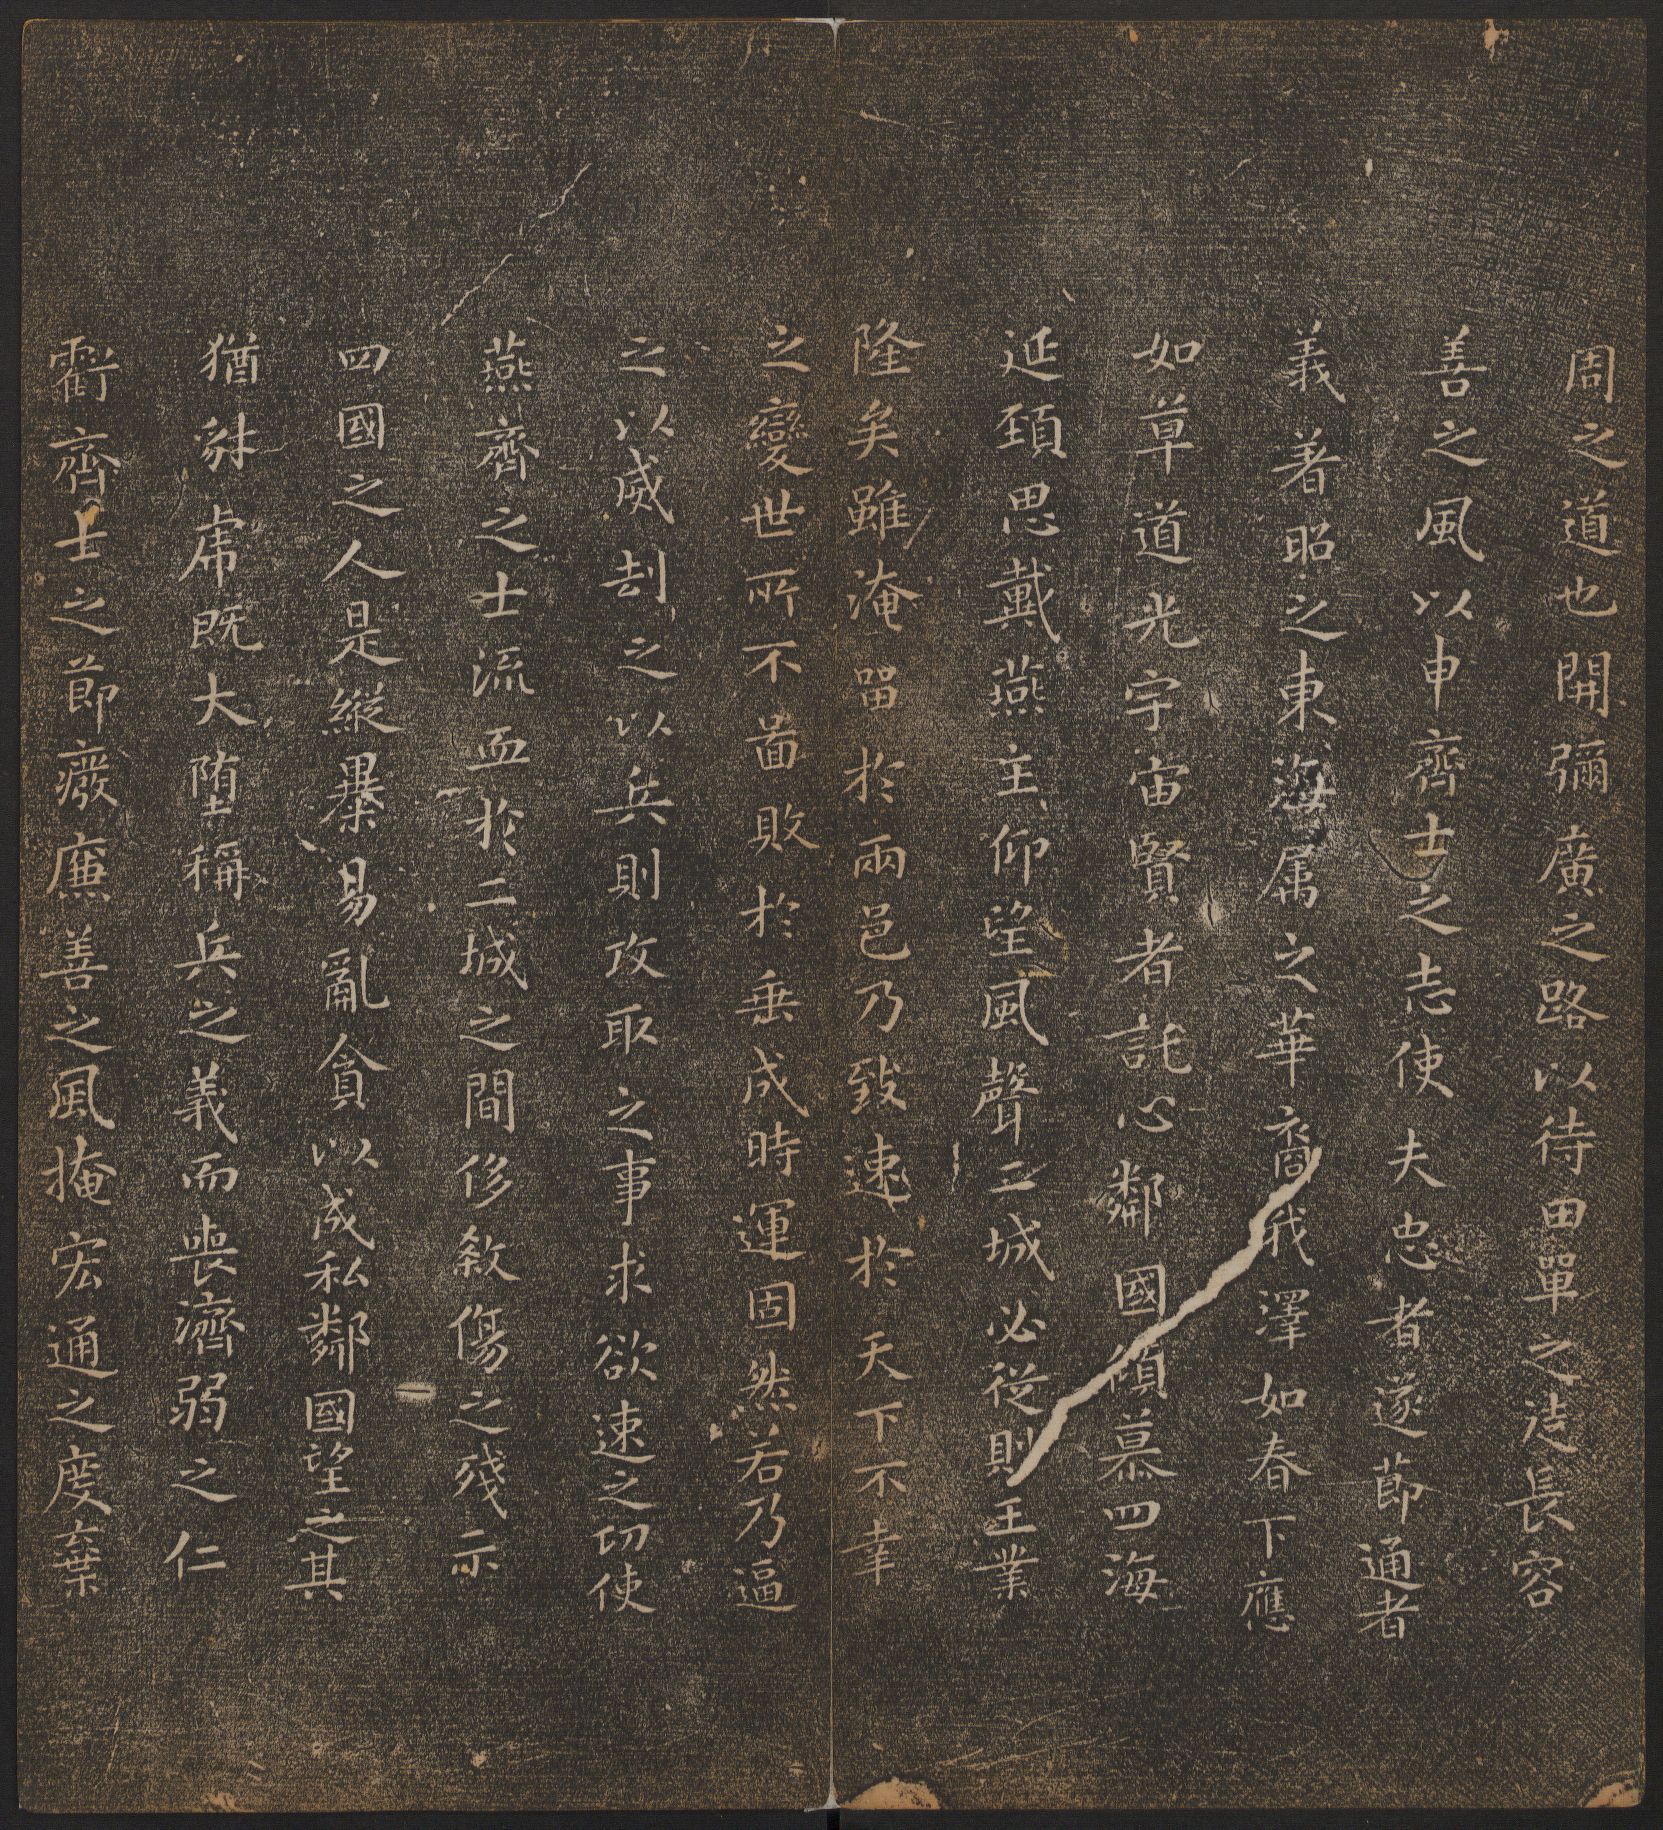 周之道也開彌廣之路以待田單之徒長容
善之風以申齊士之志使夫忠者遂節通者
義著昭之東海屬之華裔我澤如春下應
如草道光宇宙賢者託心鄰國傾慕四海
延頸思戴燕主仰望風聲二城必從則王業
隆矣雖淹留於兩邑乃致速於天下不幸
之變世所不啚敗於垂成時運固然若乃逼
之以威刦之以兵則攻取之事求欲速之功使
燕齊之士流血於二城之間侈敘傷之殘示
四國之人是縱暴易亂貪以成私鄰國望之其
猶豺虎既大墮稱兵之義而喪濟弱之仁
虧齊士之節癈廉善之風掩宏通之度棄